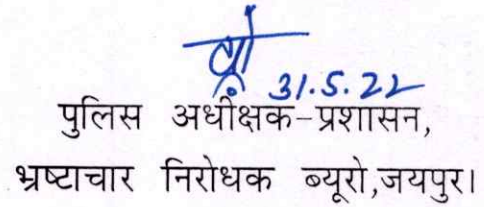 31.5.22
पुलिस अधीक्षक-प्रशासन,
भ्रष्टाचार निरोधक ब्यूरो,जयपुर।